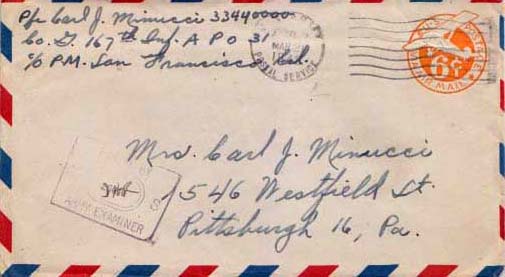 Pfc Carl J. Minucci 33440000
Co. G. 167th Inf. A P O 31
c/o P.M. San Francisco Cal.
MAR
POSTAL SERVICE
AIR MAIL
6¢
Mrs. Carl J. Minucci
1546 Westfield St.
Pittsburgh 16, Pa.
ARMY EXAMINER